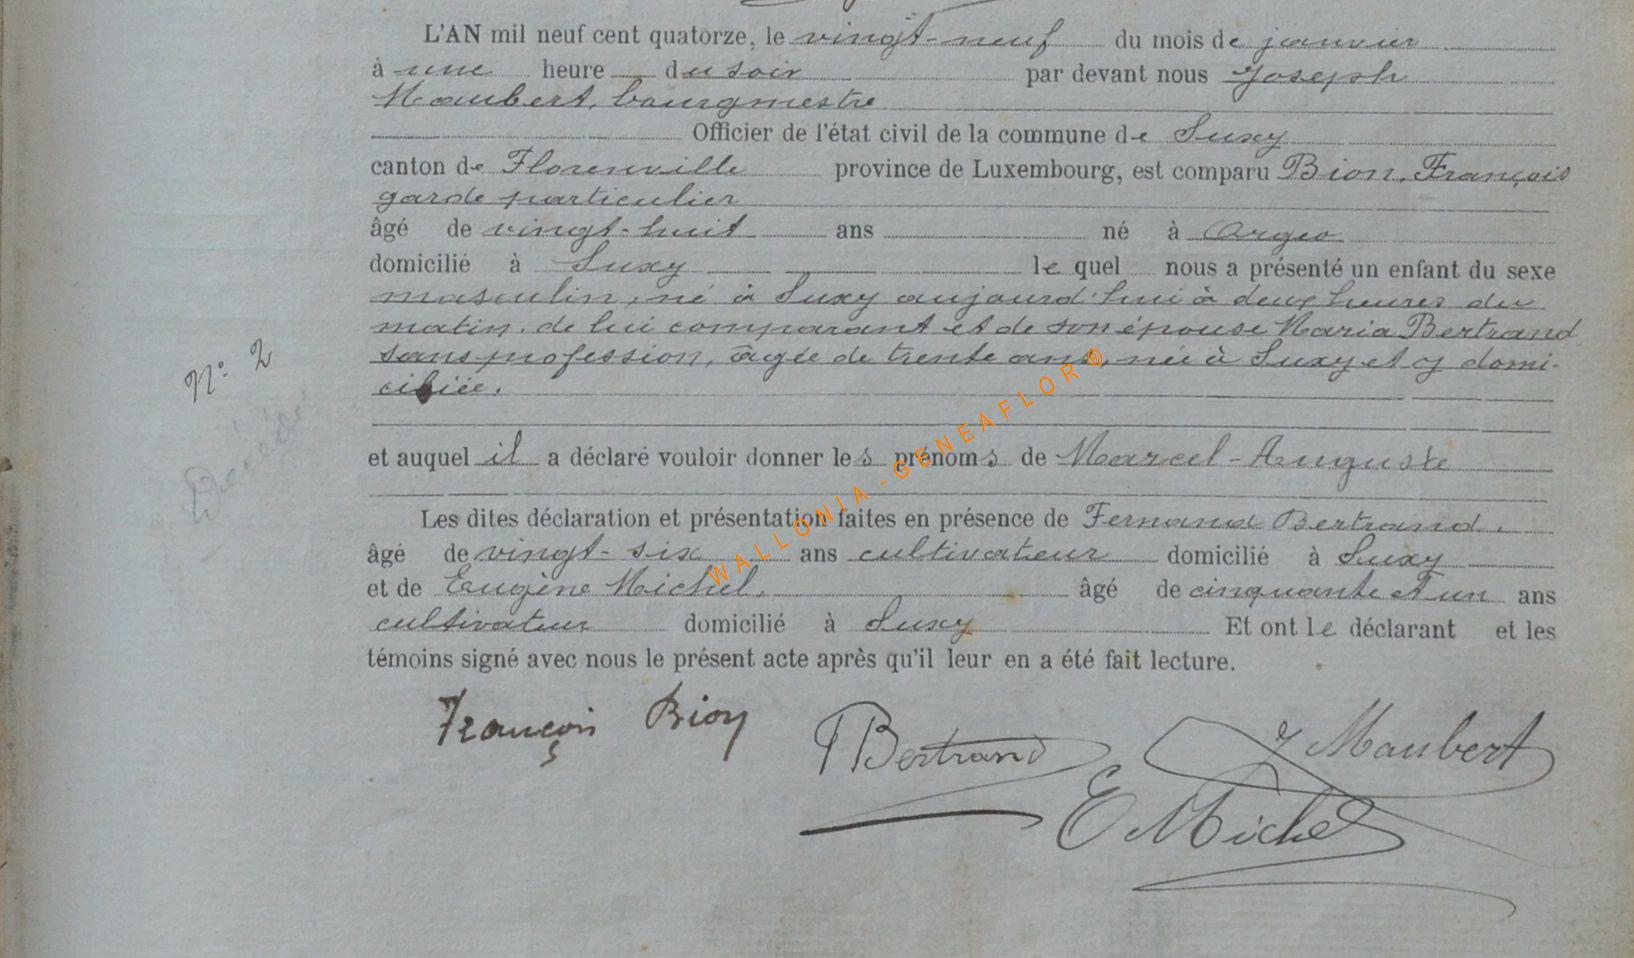 L'AN mil neuf cent quatorze, le vingt-neuf du mois de janvier
à une heure du soir par devant nous Joseph
Maubert, bourgmestre
Officier de l'état civil de la commune de Suxy
canton de Florenville province de Luxembourg, est comparu Bion, François
garde particulier
âgé de vingt-huit ans né à Orgeo
domicilié à Suxy lequel nous a présenté un enfant du sexe
masculin, né à Suxy aujourd'hui à deux heures du
matin, de lui comparant et de son épouse Maria Bertrand
sans profession, âgée de trente ans, née à Suxy et y domi-
ciliée.
N° 2
et auquel il a déclaré vouloir donner les prénoms de Marcel-Auguste
Les dites déclaration et présentation faites en présence de Fernand Bertrand,
âgé de vingt-six ans cultivateur domicilié à Suxy
et de Eugène Michel, âgé de cinquante et un ans
cultivateur domicilié à Suxy Et ont le déclarant et les
témoins signé avec nous le présent acte après qu'il leur en a été fait lecture.
François Bion
F Bertrand
J Maubert
E Michel
WALLONIA-GENEAFLOR®